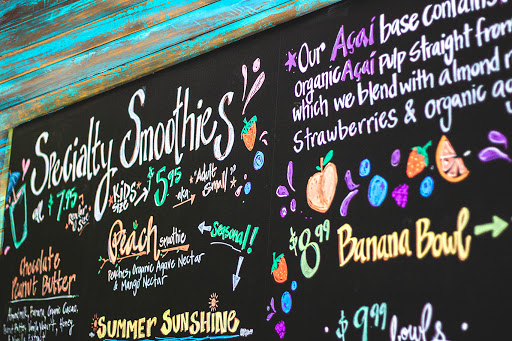 Specialty Smoothies
all $7.95
regular size
Kids size → $5.95
aka "Adult Small"
Peach smoothie
Peaches, Organic Agave Nectar
& Mango Nectar
← Seasonal!!
Chocolate
Peanut Butter
Almondmilk, Banana, Organic Cacao,
Peanut Butter, Vanilla Yogurt, Honey
SUMMER SUNSHINE
Our Açaí base contains
Organic Açaí Pulp straight from
which we blend with almond
Strawberries & organic
$8.99 Banana Bowl →
$9.99 bowls